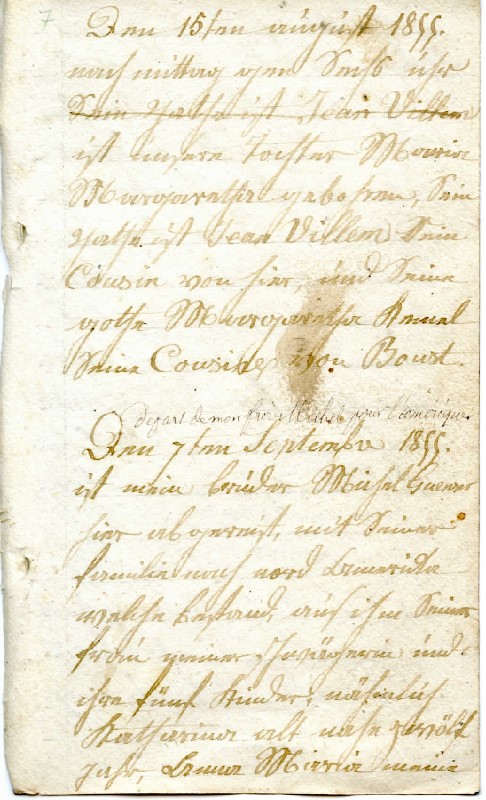 7
Den 15ten august 1855.
nach mittag gen Sechs uhr
Sein pathe ist Jean Villem
ist unsere Tochter Maria
Margaretha gebohren, Sein
pathe ist Jean Villem Sein
Cousin von hier, und Seine
gothe Margaretha Remel
Seine Cousine von Boust.
départ de mon frère Michel pour l'amérique
Den 7ten Septembre 1855.
ist mein bruder Michel Guerser
hier abgereist, mit Seiner
familie nach nord Amerika
welche bestand, aus ihm Seiner
frau meiner schwägerin und
ihre fünf Kinder, nähmlich
Katharina alt nahe zwölf
Jahr, Anna Maria meine